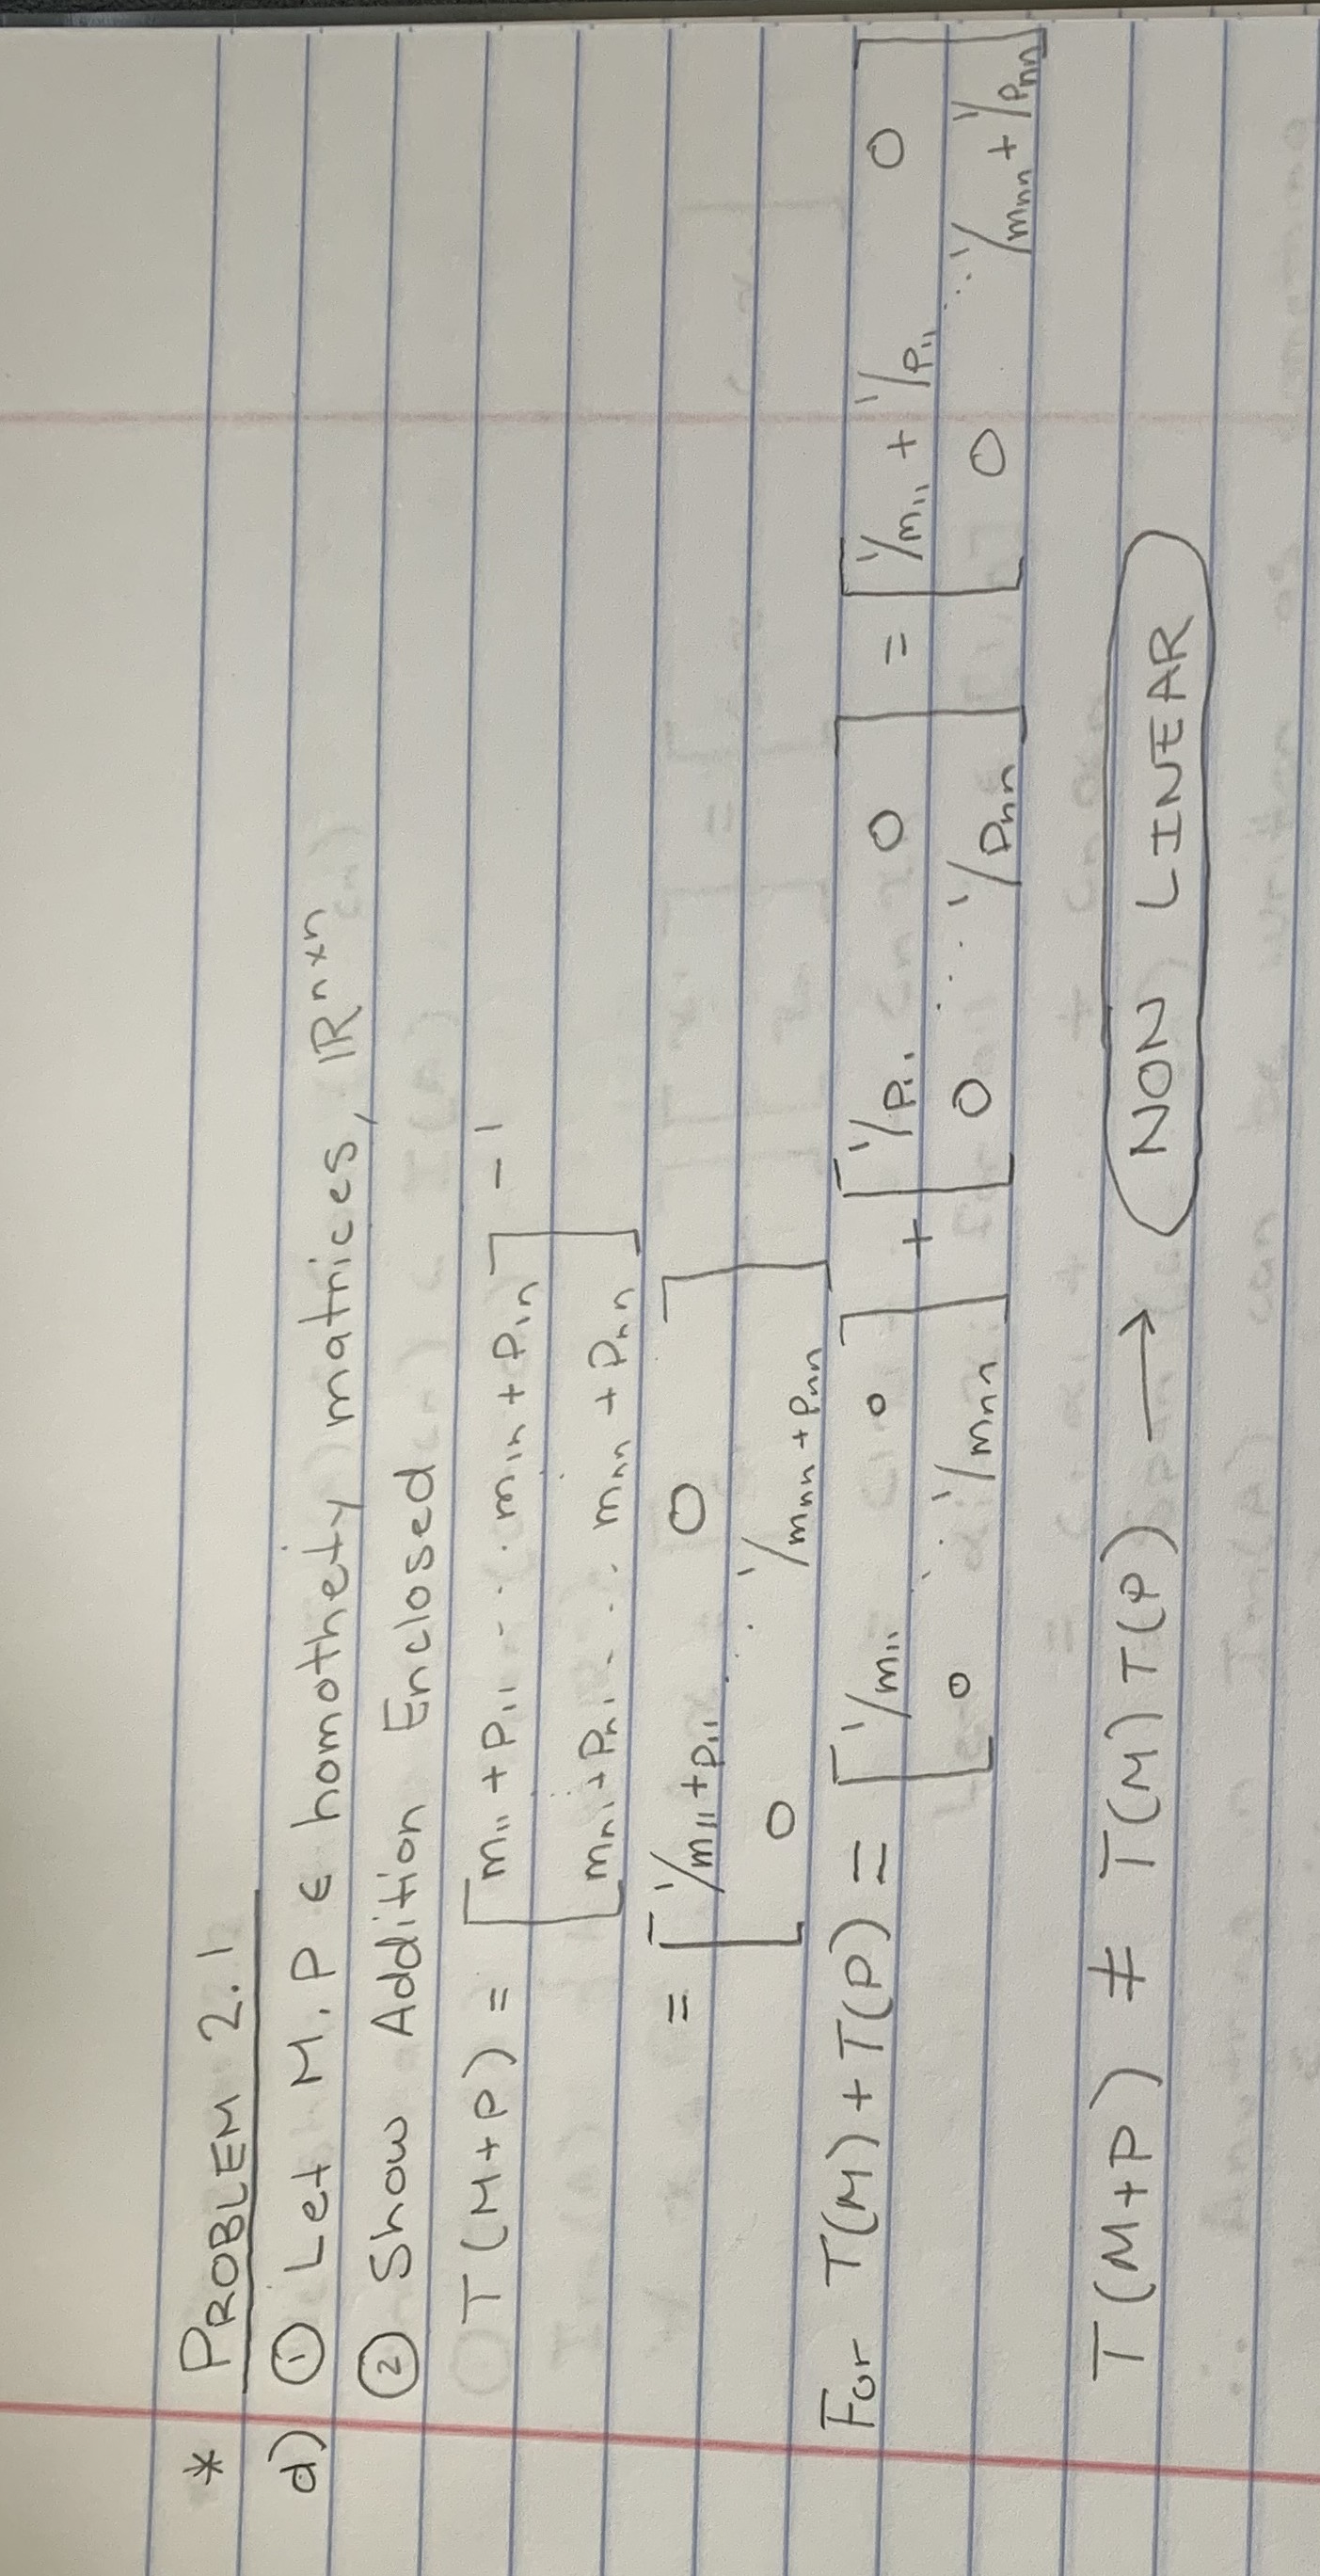 * PROBLEM 2.1
d) ① Let M, P ∈ homothety matrices, ℝⁿˣⁿ
② Show Addition Enclosed
T(M+P) = [ m₁₁ + p₁₁ ... m₁ₙ + p₁ₙ ] ⁻¹
[ mₙ₁ + pₙ₁ ... mₙₙ + pₙₙ ]
= [ 1/m₁₁+p₁₁ 0 ]
[ 0 ⋱ 1/mₙₙ+pₙₙ ]
For T(M) + T(P) = [ 1/m₁₁ 0 ] + [ 1/p₁₁ 0 ] = [ 1/m₁₁ + 1/p₁₁ 0 ]
[ 0 ⋱ 1/mₙₙ ] [ 0 ⋱ 1/pₙₙ ] [ 0 ⋱ 1/mₙₙ + 1/pₙₙ ]
T(M+P) ≠ T(M) T(P) → NON LINEAR